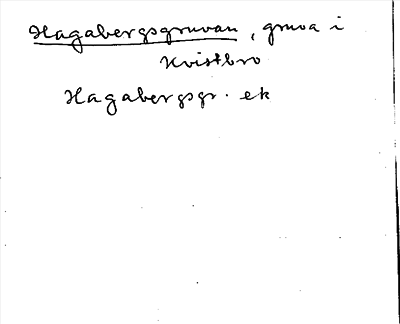 Hagabergsgruvan, gruva i
Kvistbro
Hagabergsgr. ek